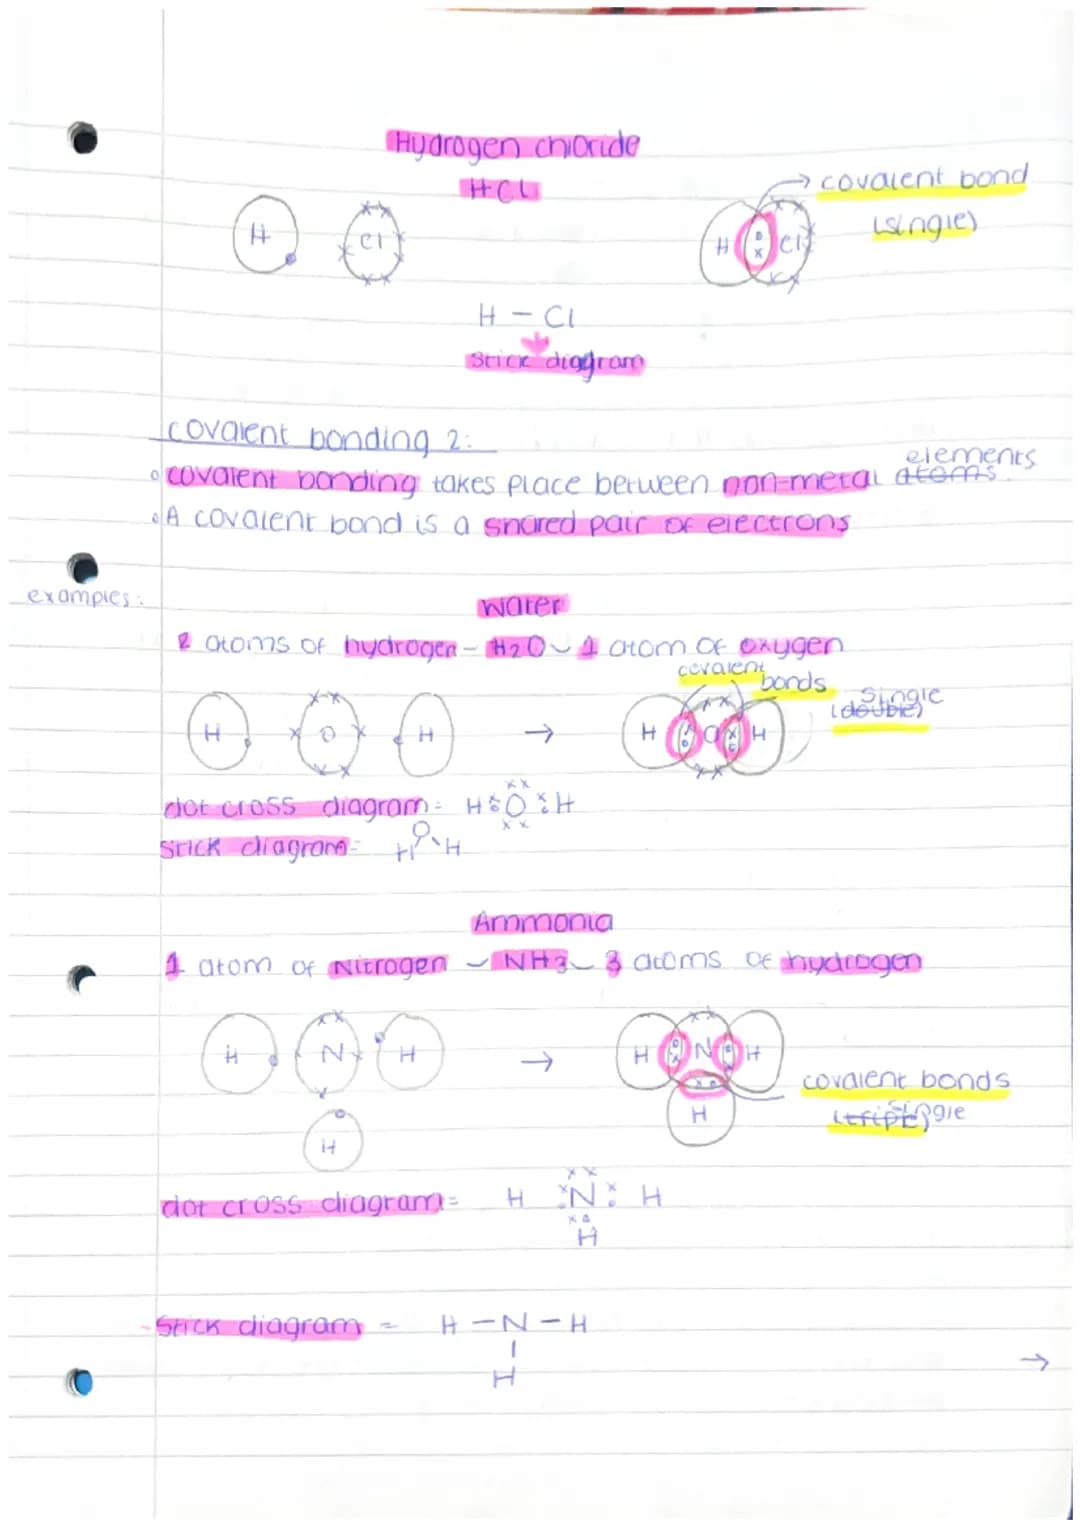 Hydrogen chloride
HCl
covalent bond
(single)
H Cl
H Cl
H - Cl
Stick diagram
covalent bonding 2:
elements
covalent bonding takes place between non-metal atoms.
A covalent bond is a shared pair of electrons
examples:
Water
2 atoms of hydrogen - H2O - 1 atom of oxygen
covalent bonds
single
(double)
H O H → H O H
dot cross diagram = H O H
Stick diagram = O
H H
Ammonia
1 atom of Nitrogen - NH3 - 3 atoms of hydrogen
H N H → H N H
H H
covalent bonds
single
(triple)
dot cross diagram = H N H
H
Stick diagram = H - N - H
|
H
→